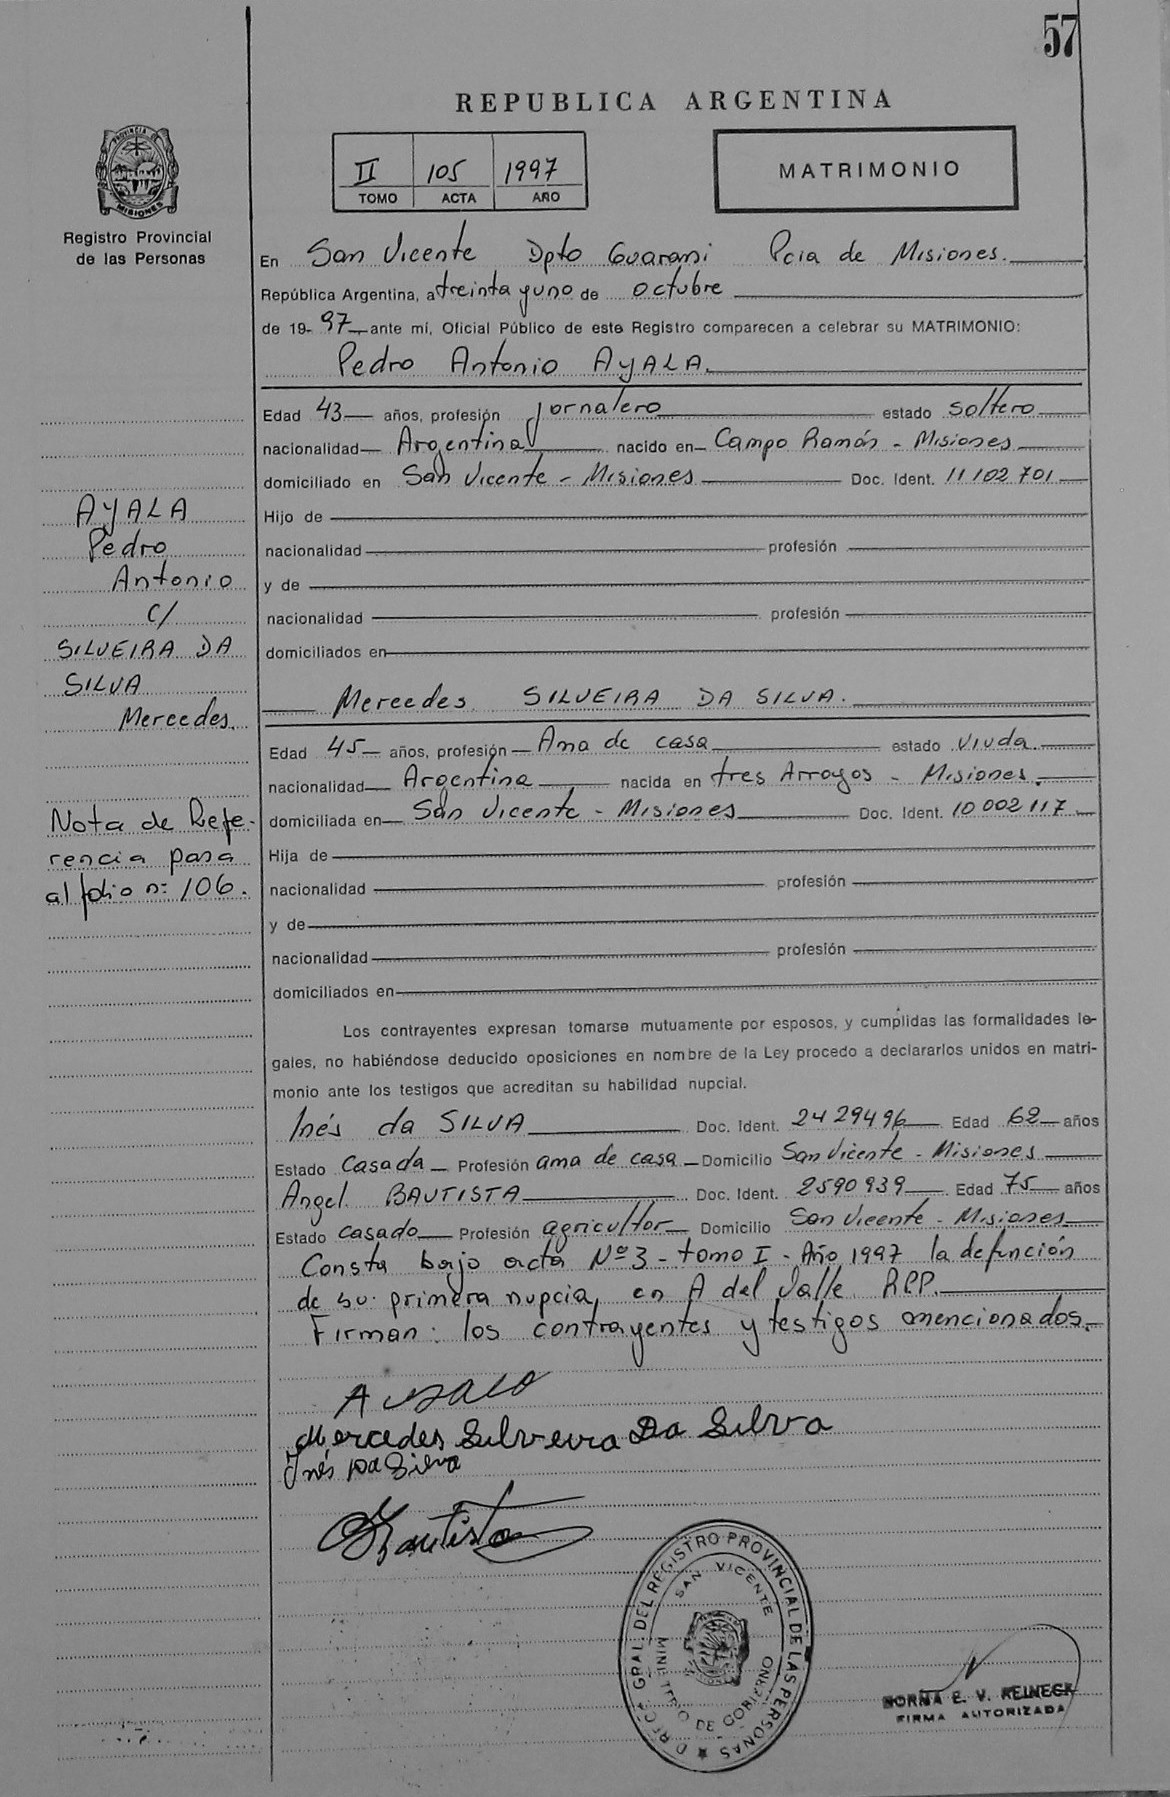 57
REPUBLICA ARGENTINA
PROVINCIA DE
MISIONES
Registro Provincial
de las Personas
II 105 1997
TOMO ACTA AÑO
MATRIMONIO
En San Vicente Dpto Guarani Pcia de Misiones.
República Argentina, a treinta y uno de octubre
de 19 97 ante mí, Oficial Público de este Registro comparecen a celebrar su MATRIMONIO:
Pedro Antonio AYALA.
Edad 43 años, profesión jornalero estado soltero
nacionalidad Argentina nacido en Campo Ramón - Misiones
domiciliado en San Vicente - Misiones Doc. Ident. 11 102 701
Hijo de
nacionalidad profesión
y de
nacionalidad profesión
domiciliados en
AYALA
Pedro
Antonio
C/
SILVEIRA DA
SILVA
Mercedes.
Mercedes SILVEIRA DA SILVA.
Edad 45 años, profesión Ama de casa estado viuda.
nacionalidad Argentina nacida en tres Arroyos - Misiones.
domiciliada en San Vicente - Misiones Doc. Ident. 10 002 117
Hija de
nacionalidad profesión
y de
nacionalidad profesión
domiciliados en
Nota de Refe-
rencia pasa
al folio nº 106.
Los contrayentes expresan tomarse mutuamente por esposos, y cumplidas las formalidades le-
gales, no habiéndose deducido oposiciones en nombre de la Ley procedo a declararlos unidos en matri-
monio ante los testigos que acreditan su habilidad nupcial.
Inés da SILVA Doc. Ident. 2429496 Edad 62 años
Estado casada Profesión ama de casa Domicilio San Vicente - Misiones
Angel BAUTISTA Doc. Ident. 2590939 Edad 75 años
Estado casado Profesión agricultor Domicilio San Vicente - Misiones
Consta bajo acta Nº 3 - tomo I - Año 1997 la defunción
de su primera nupcia, en A del Valle RPP.
Firman: los contrayentes y testigos mencionados.
Mercedes Silveira Da Silva
Inés Da Silva
Bautista
DIREC. GRAL. DEL REGISTRO PROVINCIAL DE LAS PERSONAS
SAN VICENTE
MINISTERIO DE GOBIERNO
NORMA E. V. REINECK
FIRMA AUTORIZADA